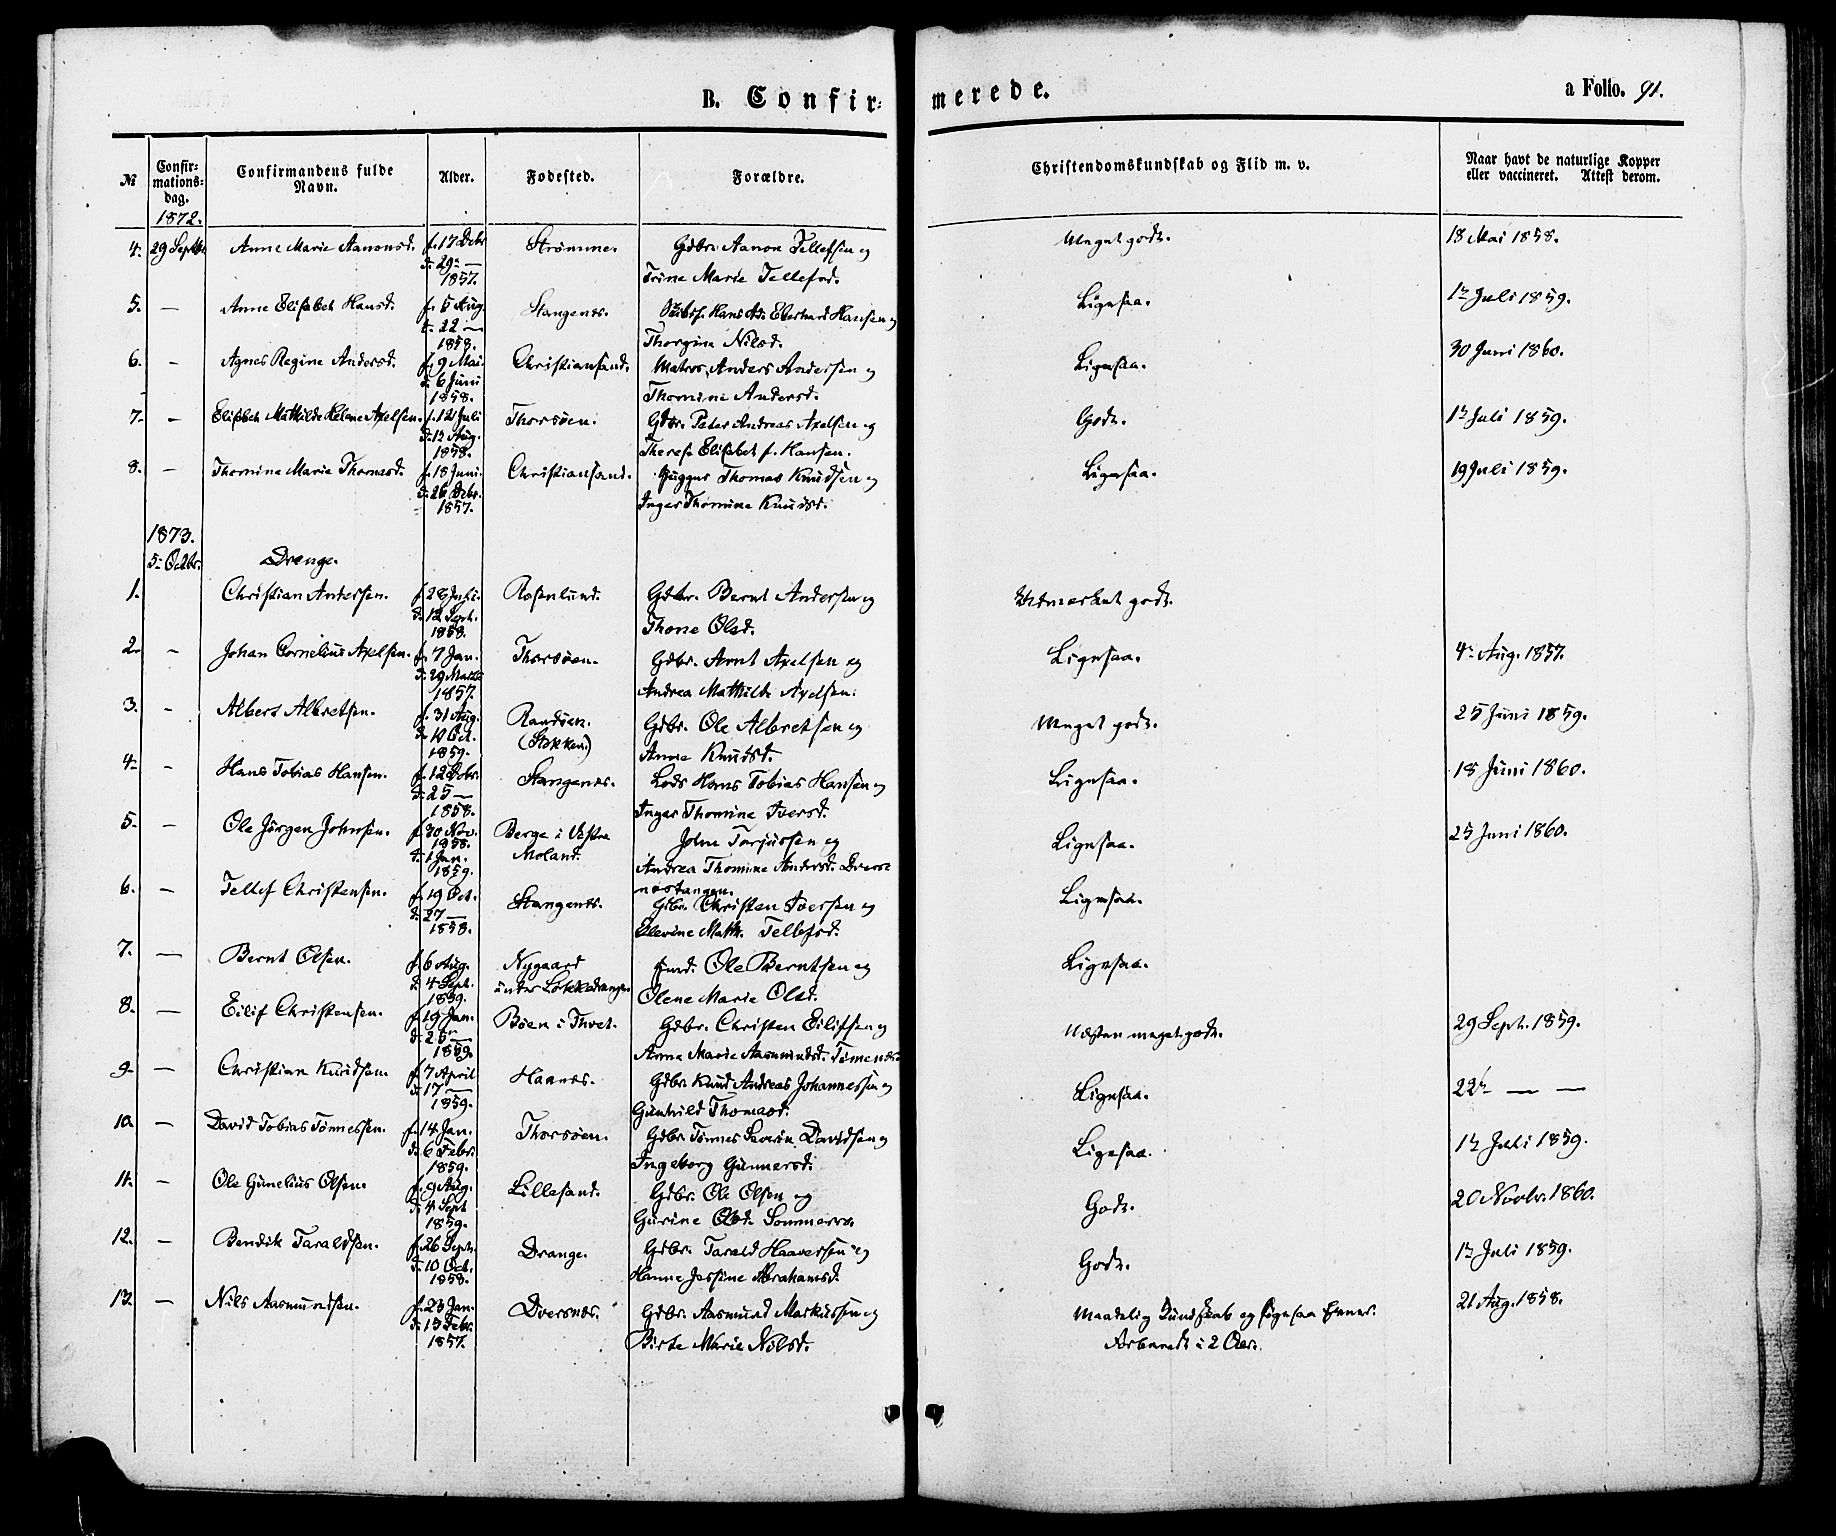 B. Confir-
merede.
a Folio. 91.
№
Confir-
mations-
dag.
Confirmandens fulde
Navn.
Alder.
Fødested.
Forældre.
Christendomskundskab og Flid m. v.
Naar havt de naturlige Kopper
eller vaccineret. Attest derom.
1872.
4. 29 Septbr. Anne Marie Aanonsd. f. 17 Debr. Strømme. Gdbr. Aanon Tellefsen og Meget godt. 18 Mai 1858.
d. 29 — Trine Marie Tellefsd.
1857.
5. — Anne Elisabet Hansd. f. 5 Aug. Stangenes. Hans Ad. Eberhard Hansen og Ligesaa. 12 Juli 1859.
d. 22 — Thorgine Nilsd.
1858.
6. — Agnes Regine Andersd. f. 9 Mai Christiansand. Matros Anders Andersen og Ligesaa. 30 Juni 1860.
d. 6 Juni Thomine Andersd.
1858.
7. — Elisabet Mathilde Helene Axelsen. f. 12 Juli Thorsøen. Gdbr. Peter Andreas Axelsen og Godt. 12 Juli 1859.
d. 13 Aug. Therese Elisabet f. Hansen.
1858.
8. — Thomine Marie Thomasd. f. 18 Juni. Christiansand. Thomas Knudsen og Ligesaa. 19 Juli 1859.
d. 26 Debr. Inger Thomine Knudsd.
1857.
1873.
5. Octbr. Drenge.
1. Christian Andersen. f. 28 Juli. Rosenlund. Gdbr. Bernt Andersen og Udmerket godt.
d. 12 Sept. Thone Olsd.
1858.
2. — Johan Cornelius Axelsen. f. 7 Jan. Thorsøen. Gdbr. Arnt Axelsen og Ligesaa. 4 Aug. 1857.
d. 29 Marts Andrea Mathilde Axelsen.
1857.
3. — Albert Albretsen. f. 31 Aug. Randøen. Gdbr. Ole Albretsen og Meget godt. 25 Juni 1859.
d. 10 Oct. (Stokken) Anne Knudsd.
1859.
4. — Hans Tobias Hansen. f. 12 Debr. Stangenes. Lods Hans Tobias Hansen og Ligesaa. 18 Juni 1860.
d. 25 — Inger Thomine Iversd.
1858.
5. — Ole Jørgen Johnsen. f. 30 Nov. Berge i Vestre John Torjussen og Ligesaa. 25 Juni 1860.
1858. Moland.
d. 1 Jan. Andrea Thomine Andersd. Dvers-
1859. nestangen.
6. — Tellef Christensen. f. 19 Oct. Stangenes. Gdbr. Christen Iversen og Ligesaa.
d. 27 — Elevine Math. Tellefsd.
1858.
7. — Bernt Olsen. f. 6 Aug. Nygaard Ole Berntsen og Ligesaa.
d. 4 Sept. under Løkkedrange. Olene Marie Olsd.
1859.
8. — Eilif Christensen. f. 19 Jan. Bøen i Thvet. Gdbr. Christen Eilifsen og Næsten meget godt. 29 Sept. 1859.
d. 25 — Anne Marie Aasmundsd. Tømenes.
1859.
9. — Christian Knudsen. f. 7 April Haanes. Gdbr. Knud Andreas Johannessen og Ligesaa. 22 — —
d. 17 — Gunhild Thomasd.
1859.
10. — David Tobias Tønnessen. f. 14 Jan. Thorsøen. Gdbr. Tønnes Severin Davidsen og Ligesaa. 12 Juli 1859.
d. 6 Febr. Ingeborg Gunnersd.
1859.
11. — Ole Gunelius Olsen. f. 9 Aug. Lillesand. Gdbr. Ole Olsen og Godt. 20 Novbr. 1860.
d. 4 Sept Gurine Olsd.
1859.
12. — Bendik Taraldsen. f. 26 Sept. Drange. Gdbr. Tarald Haaversen og Godt. 12 Juli 1859.
d. 10 Oct. Hanne Jessine Abrahamsd.
1858.
13. — Nils Aasmundsen. f. 23 Jan. Dversnes. Gdbr. Aasmund Markussen og Maadelig Kundskab og ligesaa Evner. 21 Aug. 1858.
d. 13 Febr. Birte Marie Nilsd. Forberedt i 2 Aar.
1857.